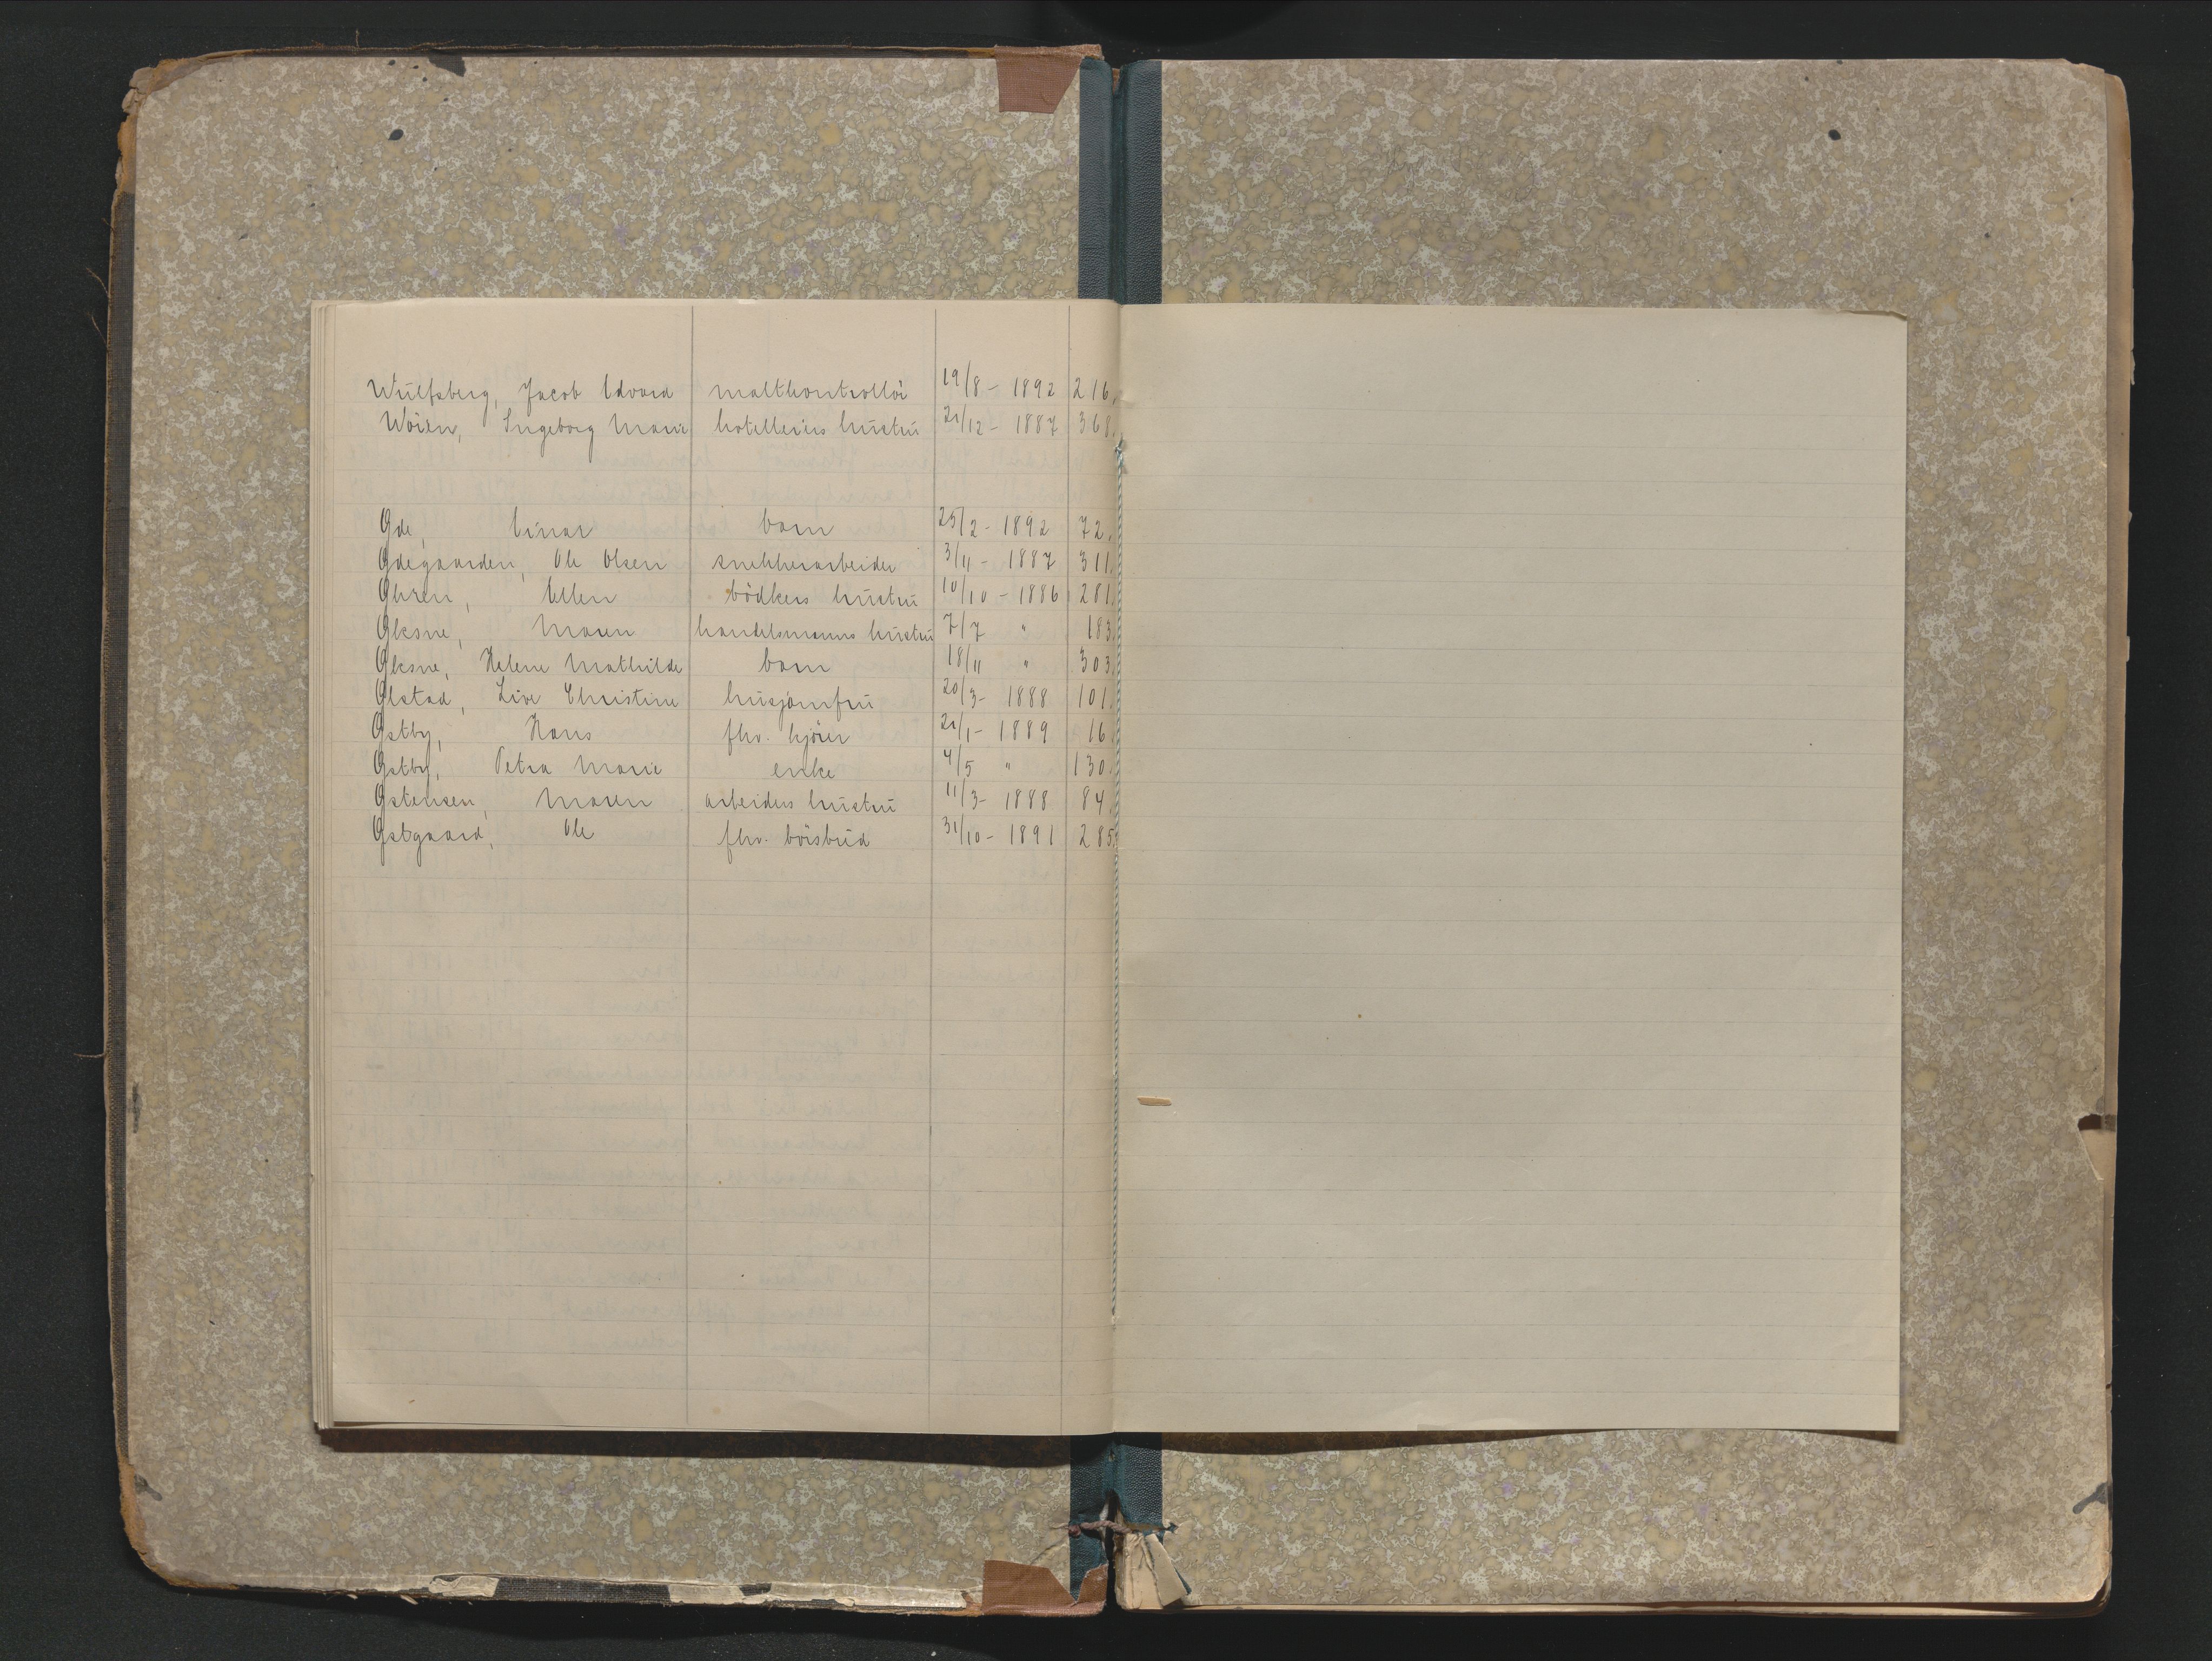 Wulfsberg, Jacob Edvard maltkontrollör 19/8 - 1892 216.
Wöien, Ingeborg Marie hotelleiers hustru 21/12 - 1887 368.
Øde, Einar barn 25/2 - 1892 72.
Ødegaarden, Ole Olsen snekkerarbeider 3/11 - 1887 311.
Øhren, Ellen bödkers hustru 10/10 - 1886 281.
Øksne, Maren handelsmanns hustru 7/7 " 183.
Øksne, Helene Mathilde barn 18/11 " 303.
Ølstad, Live Christine husjomfru 20/3 - 1888 101.
Østby, Hans fhv. kjörer 21/1 - 1889 16.
Østby, Petra Marie enke 4/5 " 130.
Østensen, Maren arbeiders hustru 11/3 - 1888 84.
Østgaard, Ole fhv. börsbud 31/10 - 1891 285.